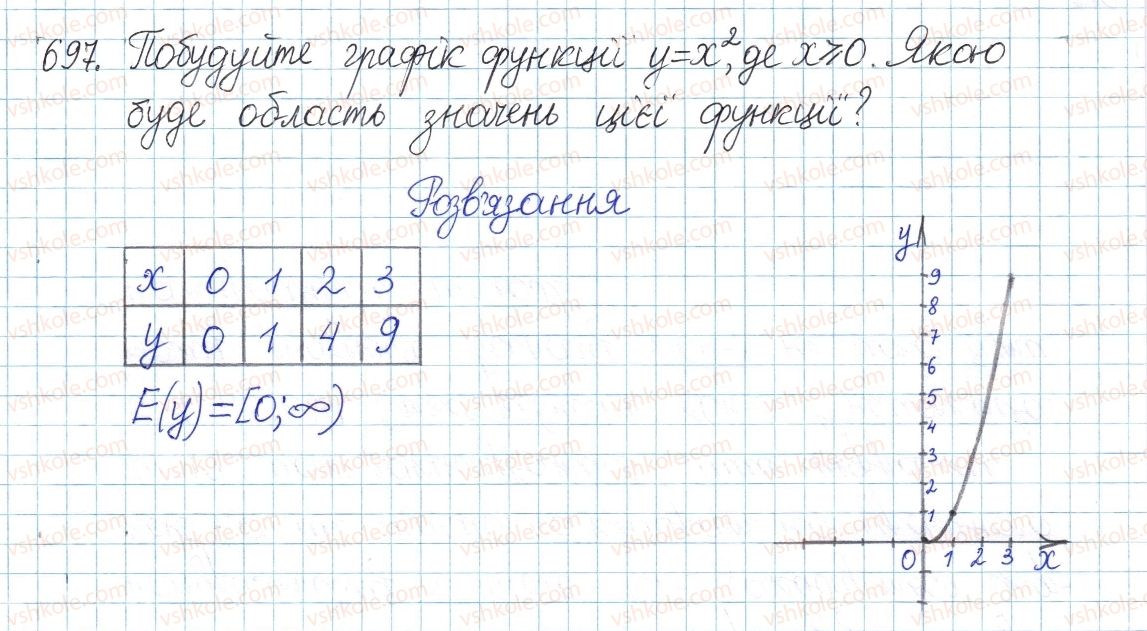 697. Побудуйте графік функції y=x², де x⩾0. Якою
буде область значень цієї функції?
Розв'язання
x 0 1 2 3
y 0 1 4 9
E(y)=[0;∞)
y
9
8
7
6
5
4
3
2
1
0 1 2 3 x
vshkole.com